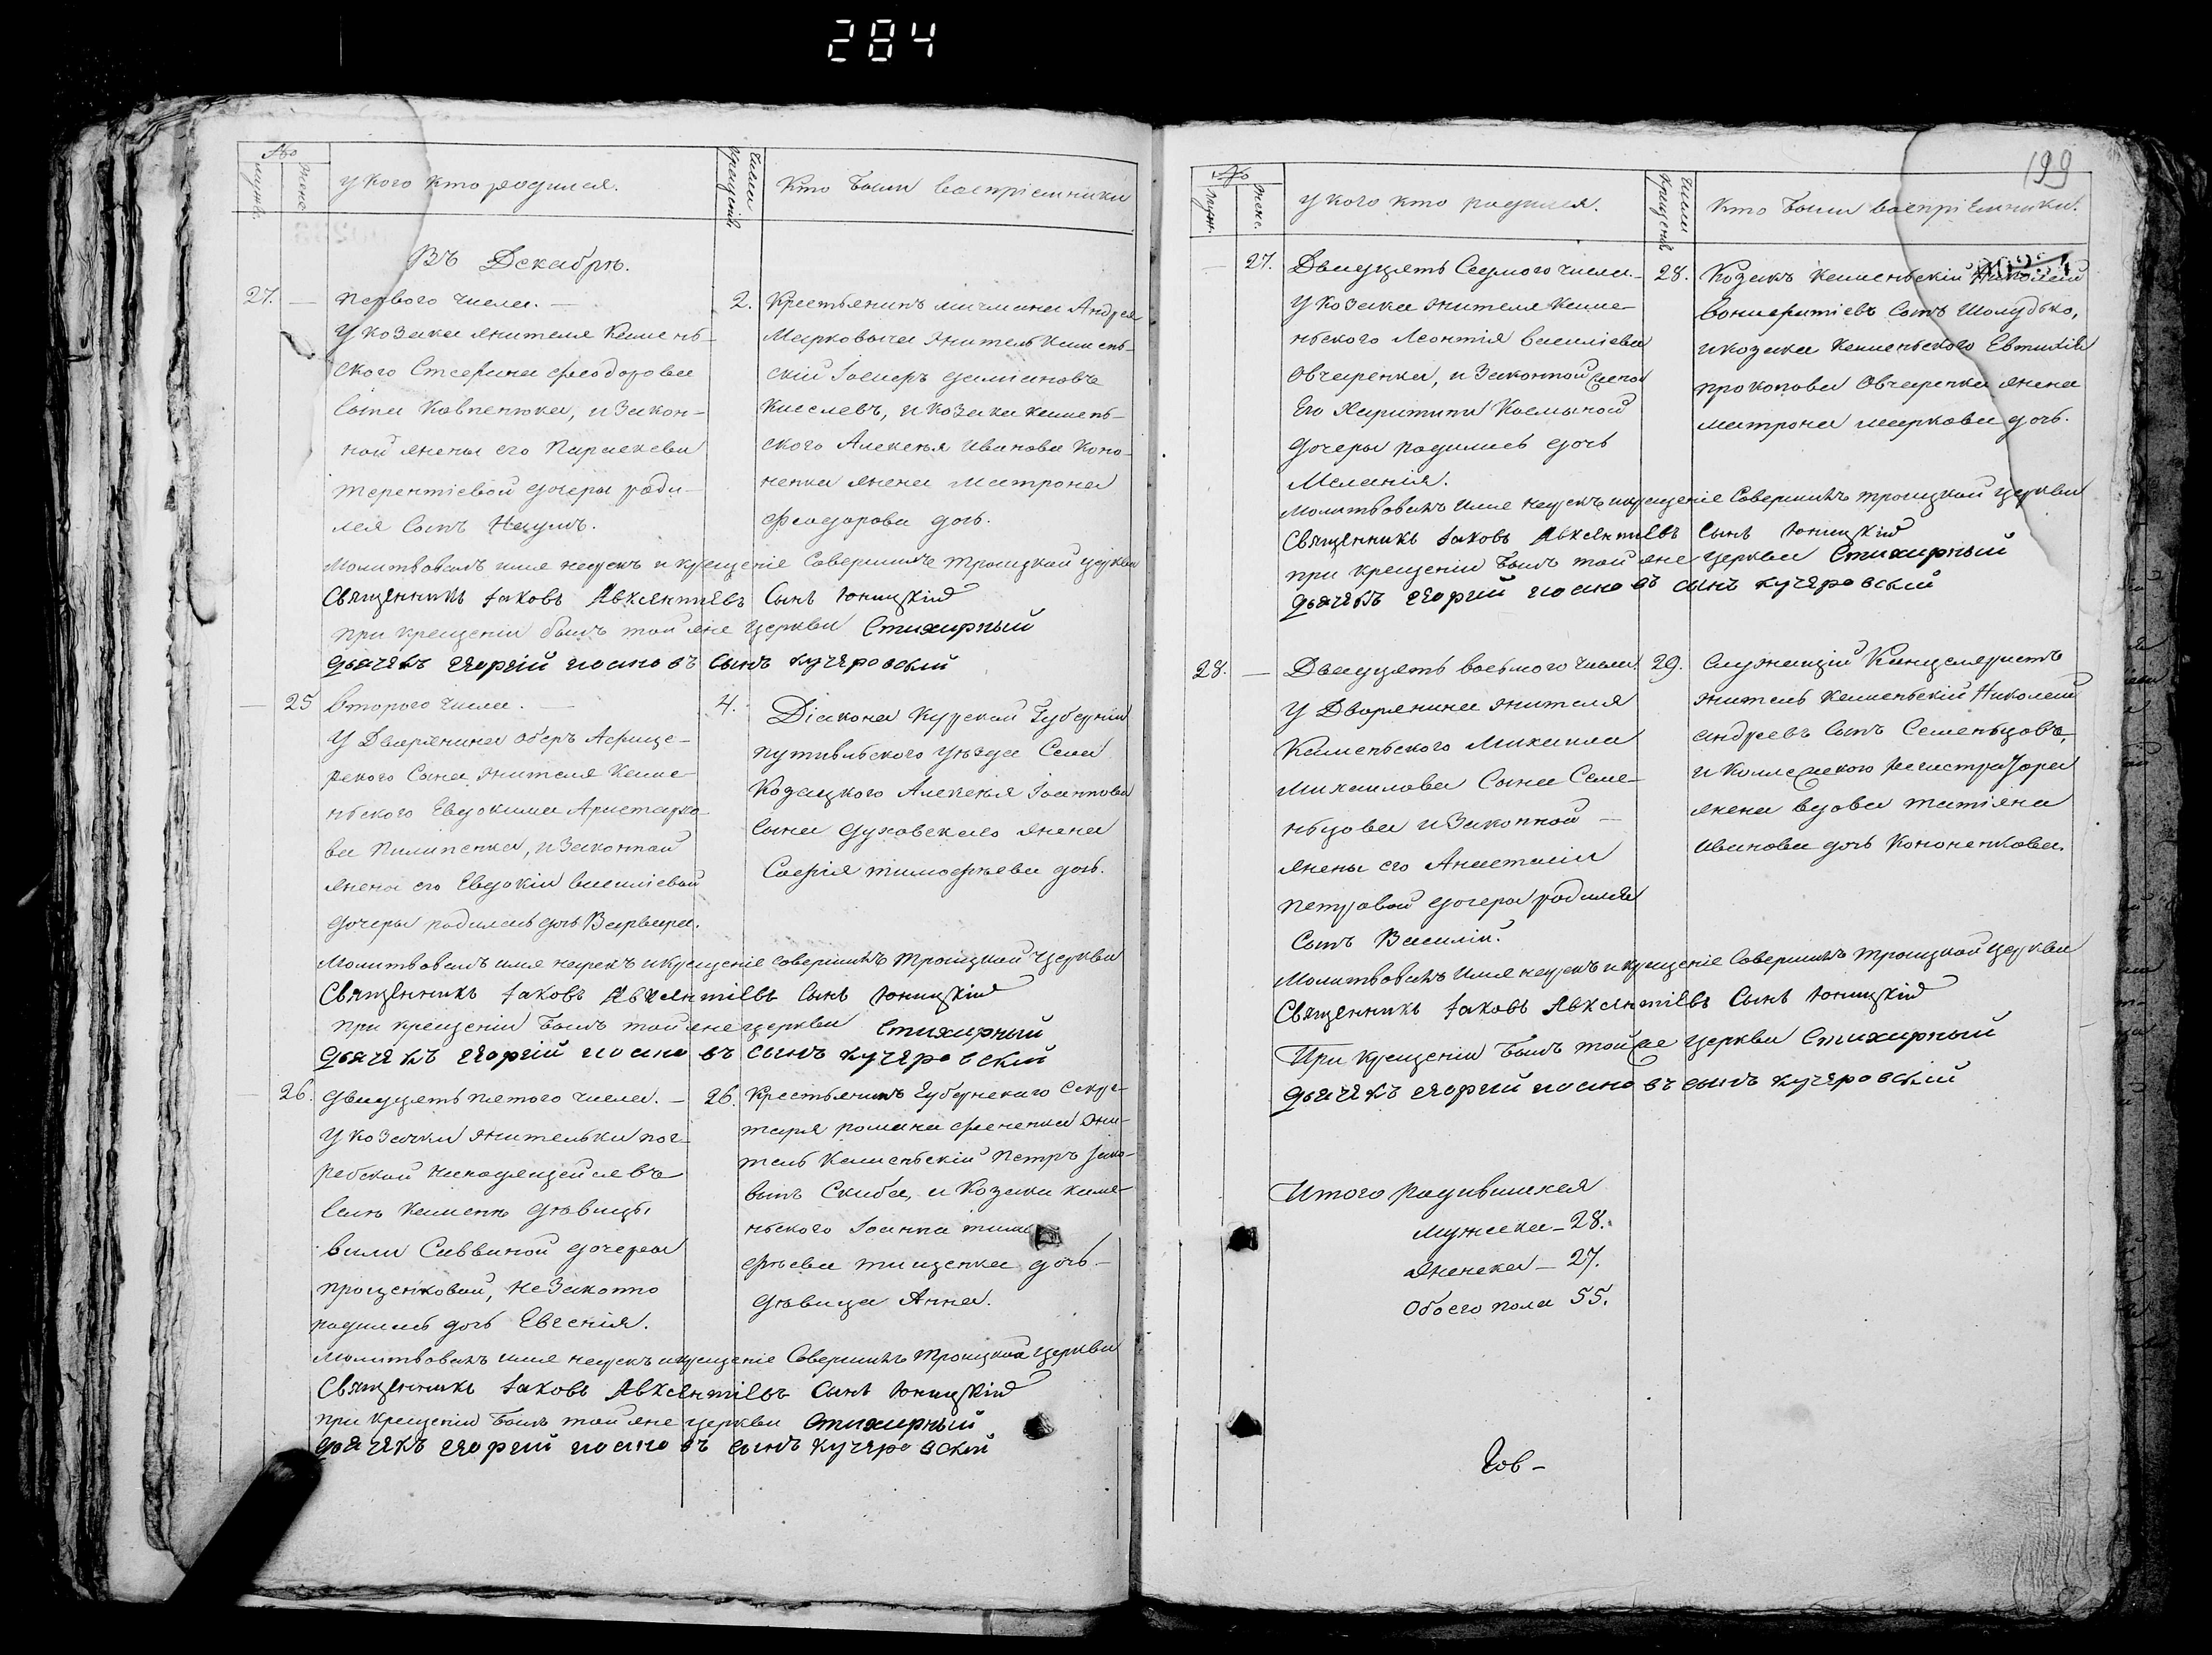 284
№
мужс.
женс.
у кого кто родился.
Числа крещенія
Кто были воспріемники
Въ Декабрѣ.
27. — перваго числа. —
У козака жителя Камень-
ского Стефана Феодорова
сына Ковпенюка, и закон-
ной жены его Параскевы
Терентіевой дочеры роди-
лся сынъ Наумъ.
2. Крестьянинъ мичмана Андрея
Марковыча житель Камень-
скій Іосифъ Даміановъ
Киселевъ, и козака Камень-
ского Алексея Иванова Коно-
ненка жена Матрона
Феодорова дочь.
Молитвовалъ имя нарекъ и крещеніе совершилъ Троицкой церкви
Священникъ Іаковъ Авксентіевъ Сынъ Юницкій
при крещеніи былъ той же церкви Стихарный
дьячекъ Георгій Иоановъ сынъ Кучеровский
— 25 Второго числа. —
У Дворянина оберъ Афице-
рского Сына жителя Каме-
ньского Евдокима Аристархо-
ва Пилипенка, и законной
жены его Евдокіи Василіевой
дочеры родилась дочь Варвара.
4. Діакона Курской Губерніи
Путивльского уѣзда Села
Козацкого Алексея Іоаннова
Сына Духовского жена
Софія Тимофѣева дочь.
Молитвовалъ имя нарекъ и крещеніе совершилъ Троицкой Церкви
Священникъ Іаковъ Авксентіевъ Сынъ Юницкій
при крещеніи былъ той же церкви Стихарный
дьячекъ Георгій Иоановъ сынъ Кучеровский
— 26. двадцать пятого числа. —
У козачки жительки пог-
ребской находящейся въ
селѣ Камени дѣвицы
Саввиной дочеры
Проценковой, незаконно
родилась дочь Евгенія.
26. Крестьянинъ Губернского Секре-
таря Романа Фененка жи-
тель Каменьскій Петръ Іако-
вынъ Скиба, и козака Каме-
ньского Іоанна Тимо
фѣева Тищенка дочь —
дѣвица Анна.
Молитвовалъ имя нарекъ и крещеніе совершилъ Троицкой церкви
Священникъ Іаковъ Авксентіевъ Сынъ Юницкій
при крещеніи былъ той же церкви Стихарный
дьячекъ Георгій Иоановъ сынъ Кучеровский
199
№
мужс.
женс.
у кого кто родился.
Числа Крещенія
Кто были воспріемники.
— 27. Двадцать Седмого числа. —
У козака жителя Каме-
ньского Леонтія Василіева
Овчаренка, и законной жены
Его Харитины Косминой
дочеры родилась дочь
Меланія.
28. Козакъ Каменьскій Николай
Сынъ Шолудько,
и козака Каменьского Евтихія
Прокопова Овчаренка жена
Матрона Маркова дочь.
Молитвовалъ имя нарекъ и крещеніе Совершилъ Троицкой церкви
Священникъ Іаковъ Авксентіевъ Сынъ Юницкій
при крещеніи былъ той же церкви Стихарный
дьячекъ Георгій Иоановъ сынъ Кучеровский
28. — Двадцать восьмого числа
У Дворянина жителя
Каменьского Михаила
Михаилова Сына Семе-
ньцова и законной —
жены его Анастасіи
Петровой дочеры родился
Сынъ Василій.
29. Служащій Канцеляристъ
житель Каменьскій Николай
Андреевъ сынъ Семеньцовъ,
и Коллежского Регистратора
жена вдова Татіяна
Иванова дочь Кононенкова.
Молитвовалъ имя нарекъ и крещеніе Совершилъ Троицкой церкви
Священникъ Іаковъ Авксентіевъ Сынъ Юницкій
При крещеніи былъ той же церкви Стихарный
дьячекъ Георгій Иоановъ сынъ Кучеровский
Итого родившихся
Мужеска — 28.
Женска — 27.
Обоего пола 55.